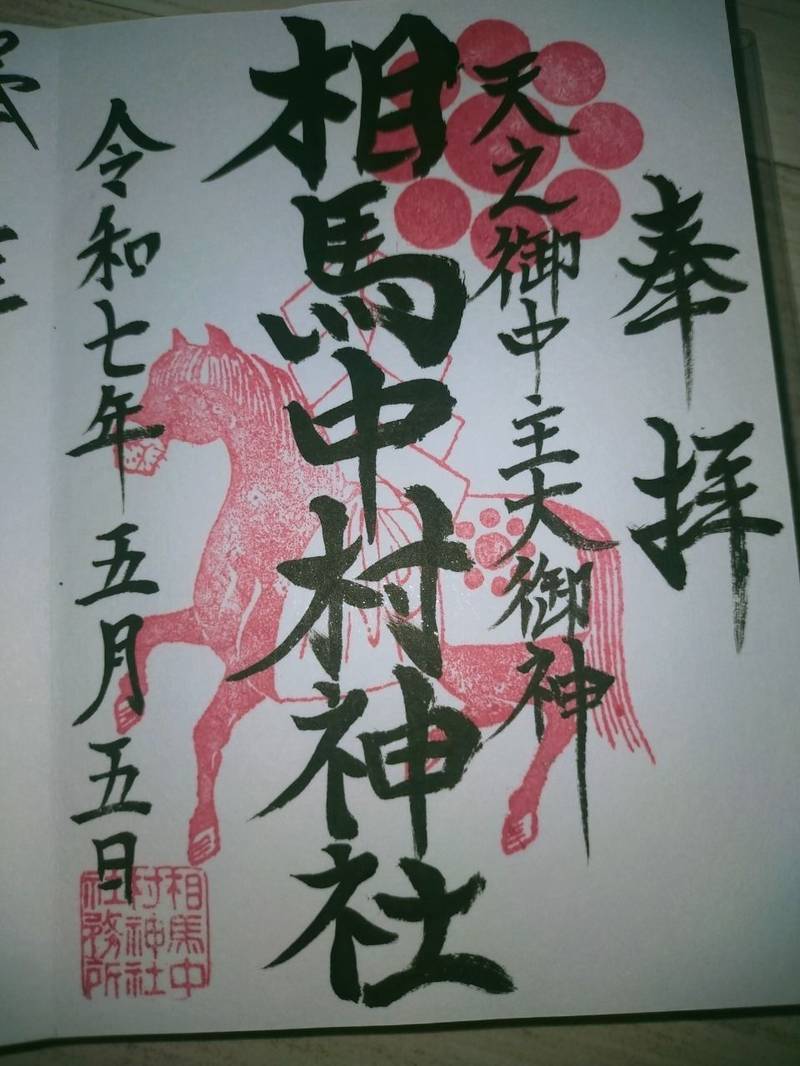 奉拝
天之御中主大御神
相馬中村神社
令和七年五月五日
相馬中
村神社
社務所